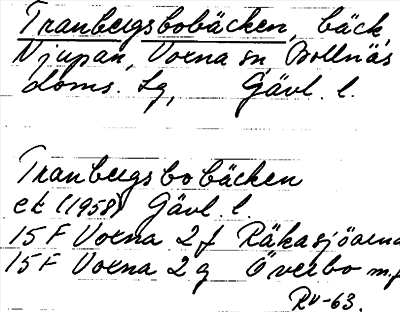 Tranbergsbobäcken, bäck,
Njupan, Voxna sn, Bollnäs
doms. sg, Gävl. l.
Tranbergsbobäcken
ek (1958) Gävl. l.
15 F Voxna 2 f Räkasjöarna
15 F Voxna 2 g Överbo m.fl
RV-63.